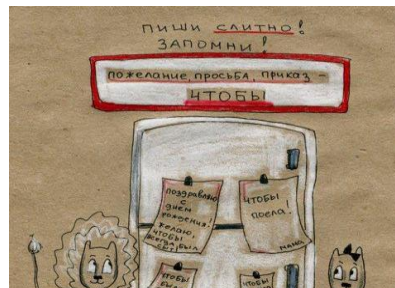 ПИШИ СЛИТНО!
ЗАПОМНИ!
пожелание, просьба, приказ -
ЧТОБЫ
поздравляю
с
днём
рождения.
желаю,
чтобы
всегда был
сыт!
ЧТОБЫ
поела!
МАМА
ЧТОБЫ
ЧТОБЫ